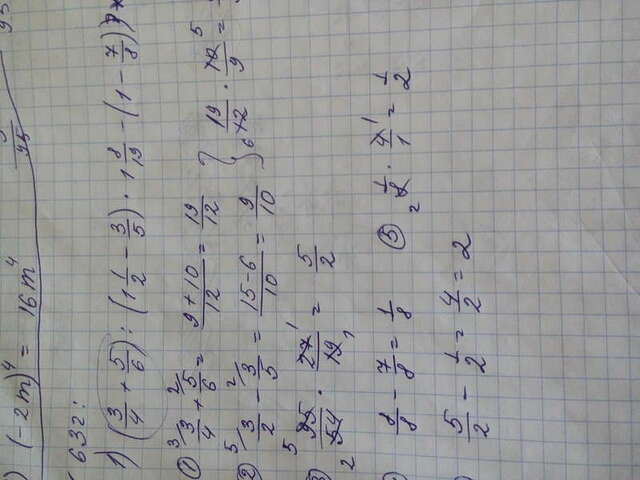 (-2m)⁴ = 16m⁴
95
632:
1) (3/4 + 5/6) : (1 1/2 - 3/5) · 1 8/19 - (1 - 7/8)
① 3/4 + 5/6 = (9+10)/12 = 19/12
② 3/2 - 3/5 = (15-6)/10 = 9/10 } 19/12 · 10/9 =
95/54 · 27/19 = 5/2
8/8 - 7/8 = 1/8 ⑤ 1/8 · 4/1 = 1/2
5/2 - 1/2 = 4/2 = 2